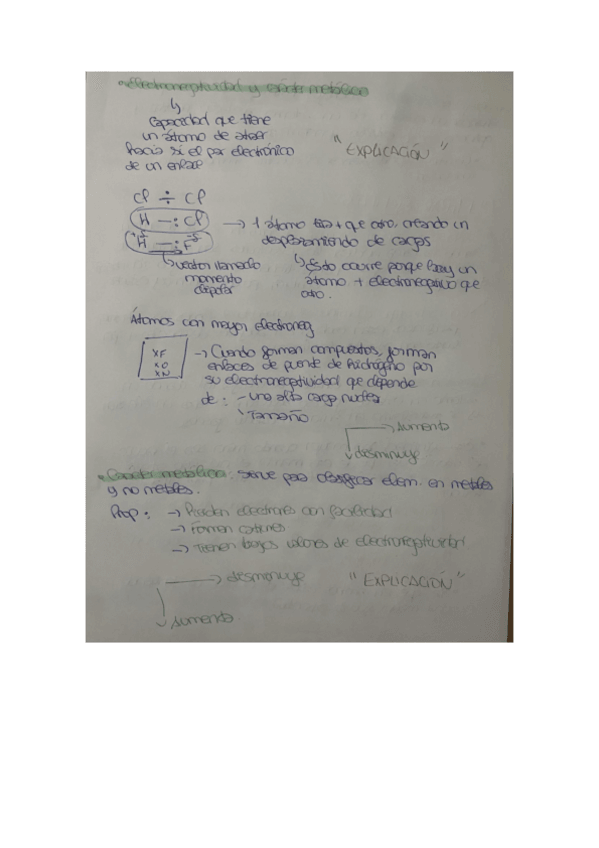 • Electronegatividad y carácter metálico
↳
Capacidad que tiene
un átomo de atraer
hacia sí el par electrónico
de un enlace
"EXPLICACIÓN"
Cl ÷ Cl
H —: Cl → 1 átomo tira + que otro, creando un
desplazamiento de cargas
+δ H —: F -δ
↳ vector llamado
momento
dipolar
↳ Esto ocurre porque hay un
átomo + electronegativo que
otro.
Átomos con mayor electroneg
xF
xO
xN
→ Cuando forman compuestos, forman
enlaces de puente de hidrógeno por
su electronegatividad que depende
de: - una alta carga nuclear
- Tamaño
→ aumenta
↓ disminuye
• Carácter metálico: sirve para clasificar elem. en metales
y no metales.
Prop: → Pierden electrones con facilidad
→ Forman cationes
→ Tienen bajos valores de electronegatividad
→ disminuye "EXPLICACIÓN"
↓ aumenta